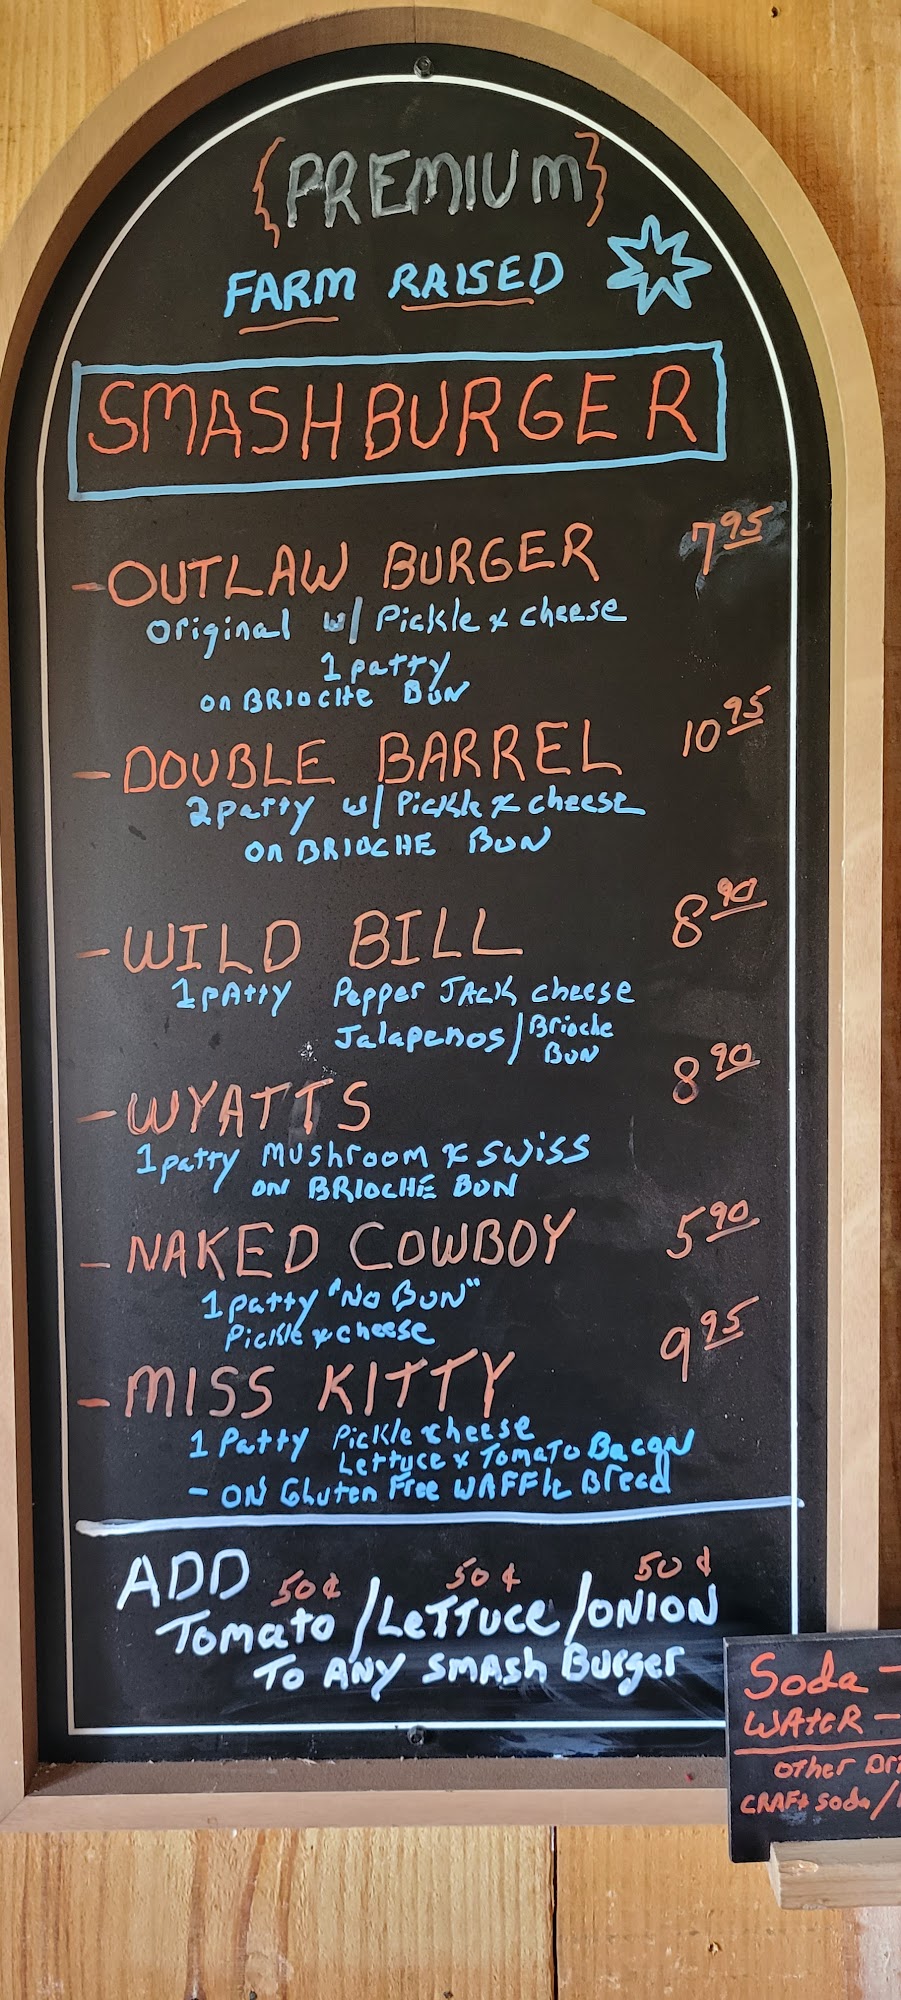 {PREMIUM}
FARM RAISED
SMASHBURGER
- OUTLAW BURGER 7.95
original w/ Pickle x cheese
1 patty
on BRIOCHE BUN
- DOUBLE BARREL 10.95
2 patty w/ Pickle x cheese
on BRIOCHE BUN
- WILD BILL 8.90
1 pAtty Pepper JACK cheese
Jalapenos / Brioche
BUN
- WYATTS 8.90
1 patty Mushroom x SWiSS
ON BRIOCHE BUN
- NAKED COWBOY 5.90
1 patty "No BUN"
Pickle x cheese
- MISS KITTY 9.95
1 Patty Pickle xcheese
Lettuce x TomaTo BacoN
- ON Gluten Free WAFFlE BrEad
ADD 50¢ 50¢ 50¢
Tomato / LeTTUCe / ONION
To ANY SmAsh Burger
Soda -
WAteR -
OTher
CRAFt soda /